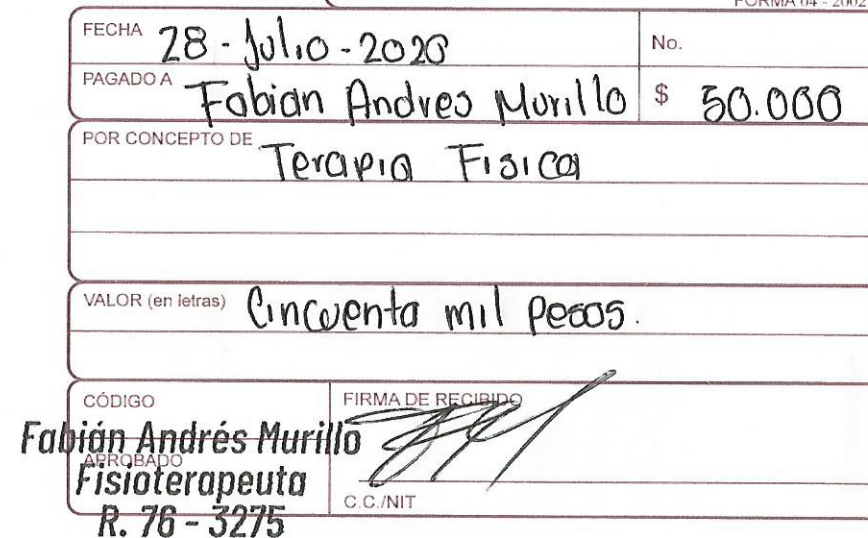 FORMA 04 - 2002
FECHA 28 - Julio - 2020
No.
PAGADO A Fabian Andres Murillo $ 50.000
POR CONCEPTO DE Terapia Fisica
VALOR (en letras) Cincuenta mil pesos.
CÓDIGO
FIRMA DE RECIBIDO
Fabián Andrés Murillo
APROBADO
Fisioterapeuta
C.C./NIT
R. 76 - 3275